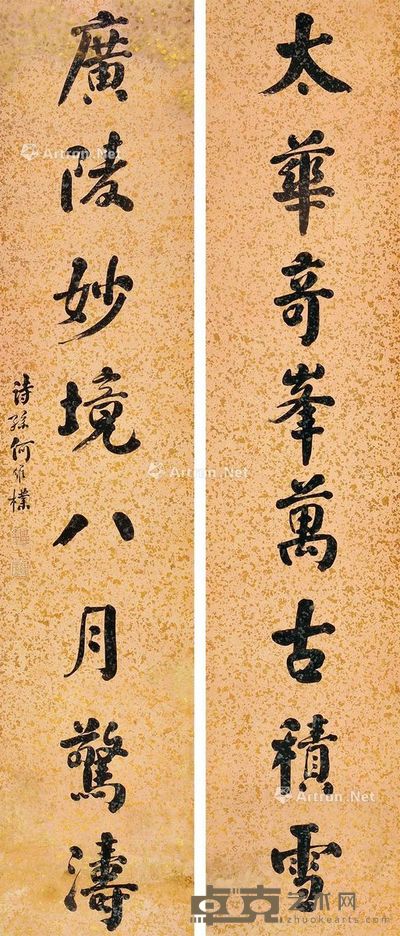 太華奇峯萬古積雪
廣陵妙境八月驚濤
詩孫何維樸
Artron.Net
Artron.Net
Artron.Net
Artron.Net
卓克艺术网
www.zhuokearts.com